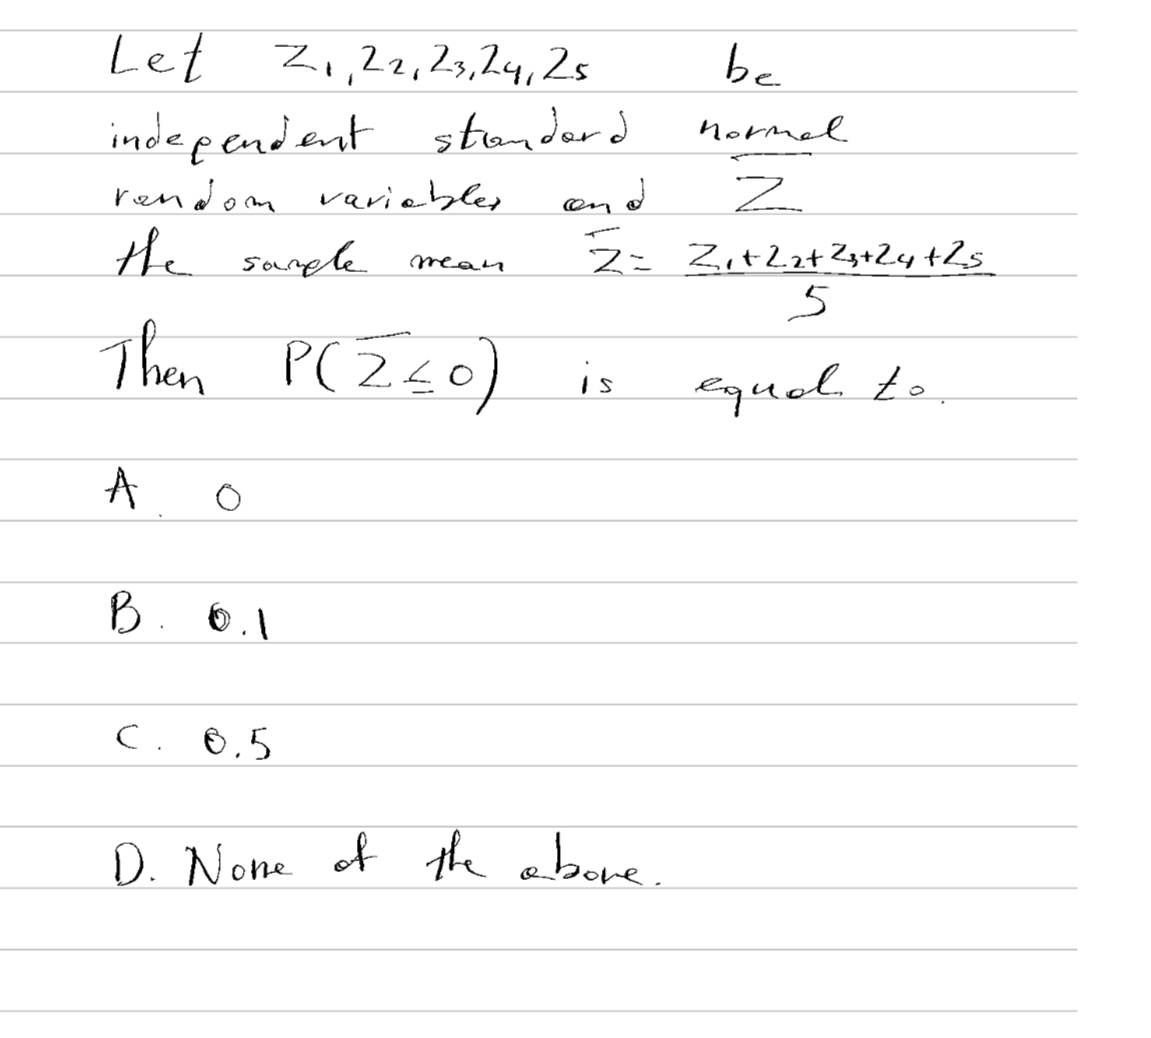 Let Z₁, Z₂, Z₃, Z₄, Z₅ be
independent standard normal
random variables and Z̅
the sample mean Z̅ = (Z₁+Z₂+Z₃+Z₄+Z₅)/5
Then P(Z̅ ≤ 0) is equal to.
A. 0
B. 0.1
C. 0.5
D. None of the above.